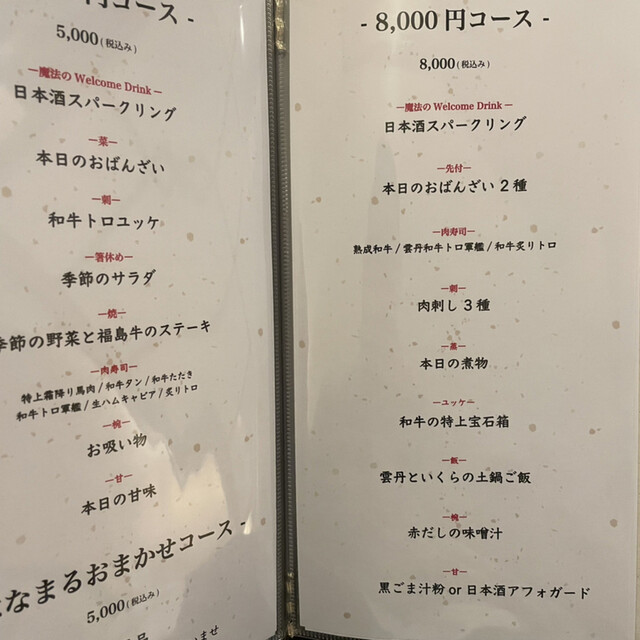 円コース -
5,000(税込み)
—魔法の Welcome Drink—
日本酒スパークリング
—菜—
本日のおばんざい
—刺—
和牛トロユッケ
—箸休め—
季節のサラダ
—焼—
季節の野菜と福島牛のステーキ
—肉寿司—
特上霜降り馬肉/和牛タン/和牛たたき
和牛トロ軍艦/生ハムキャビア/炙りトロ
—椀—
お吸い物
—甘—
本日の甘味
なまるおまかせコース -
5,000(税込み)
- 8,000 円コース -
8,000(税込み)
—魔法の Welcome Drink—
日本酒スパークリング
—先付—
本日のおばんざい 2 種
—肉寿司—
熟成和牛/雲丹和牛トロ軍艦/和牛炙りトロ
—刺—
肉刺し 3 種
—蒸—
本日の煮物
—ユッケ—
和牛の特上宝石箱
—飯—
雲丹といくらの土鍋ご飯
—椀—
赤だしの味噌汁
—甘—
黒ごま汁粉 or 日本酒アフォガード